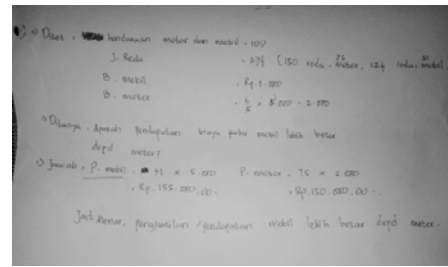 ⇒ Diket. kendaraan motor dan mobil = 100
J. Roda = 274 (150 roda motor, 124 roda mobil)
75 31
B. mobil = Rp. 5.000
B. motor = 2/5 x 5.000 = 2.000
⇒ Ditanya. Apakah pendapatan biaya parkir mobil lebih besar
drpd motor?
⇒ Jawab. P. mobil = 31 x 5.000 P. motor = 75 x 2.000
= Rp. 155.000,00-. = Rp. 150.000,00-.
Jadi benar, penghasilan/pendapatan mobil lebih besar drpd motor.